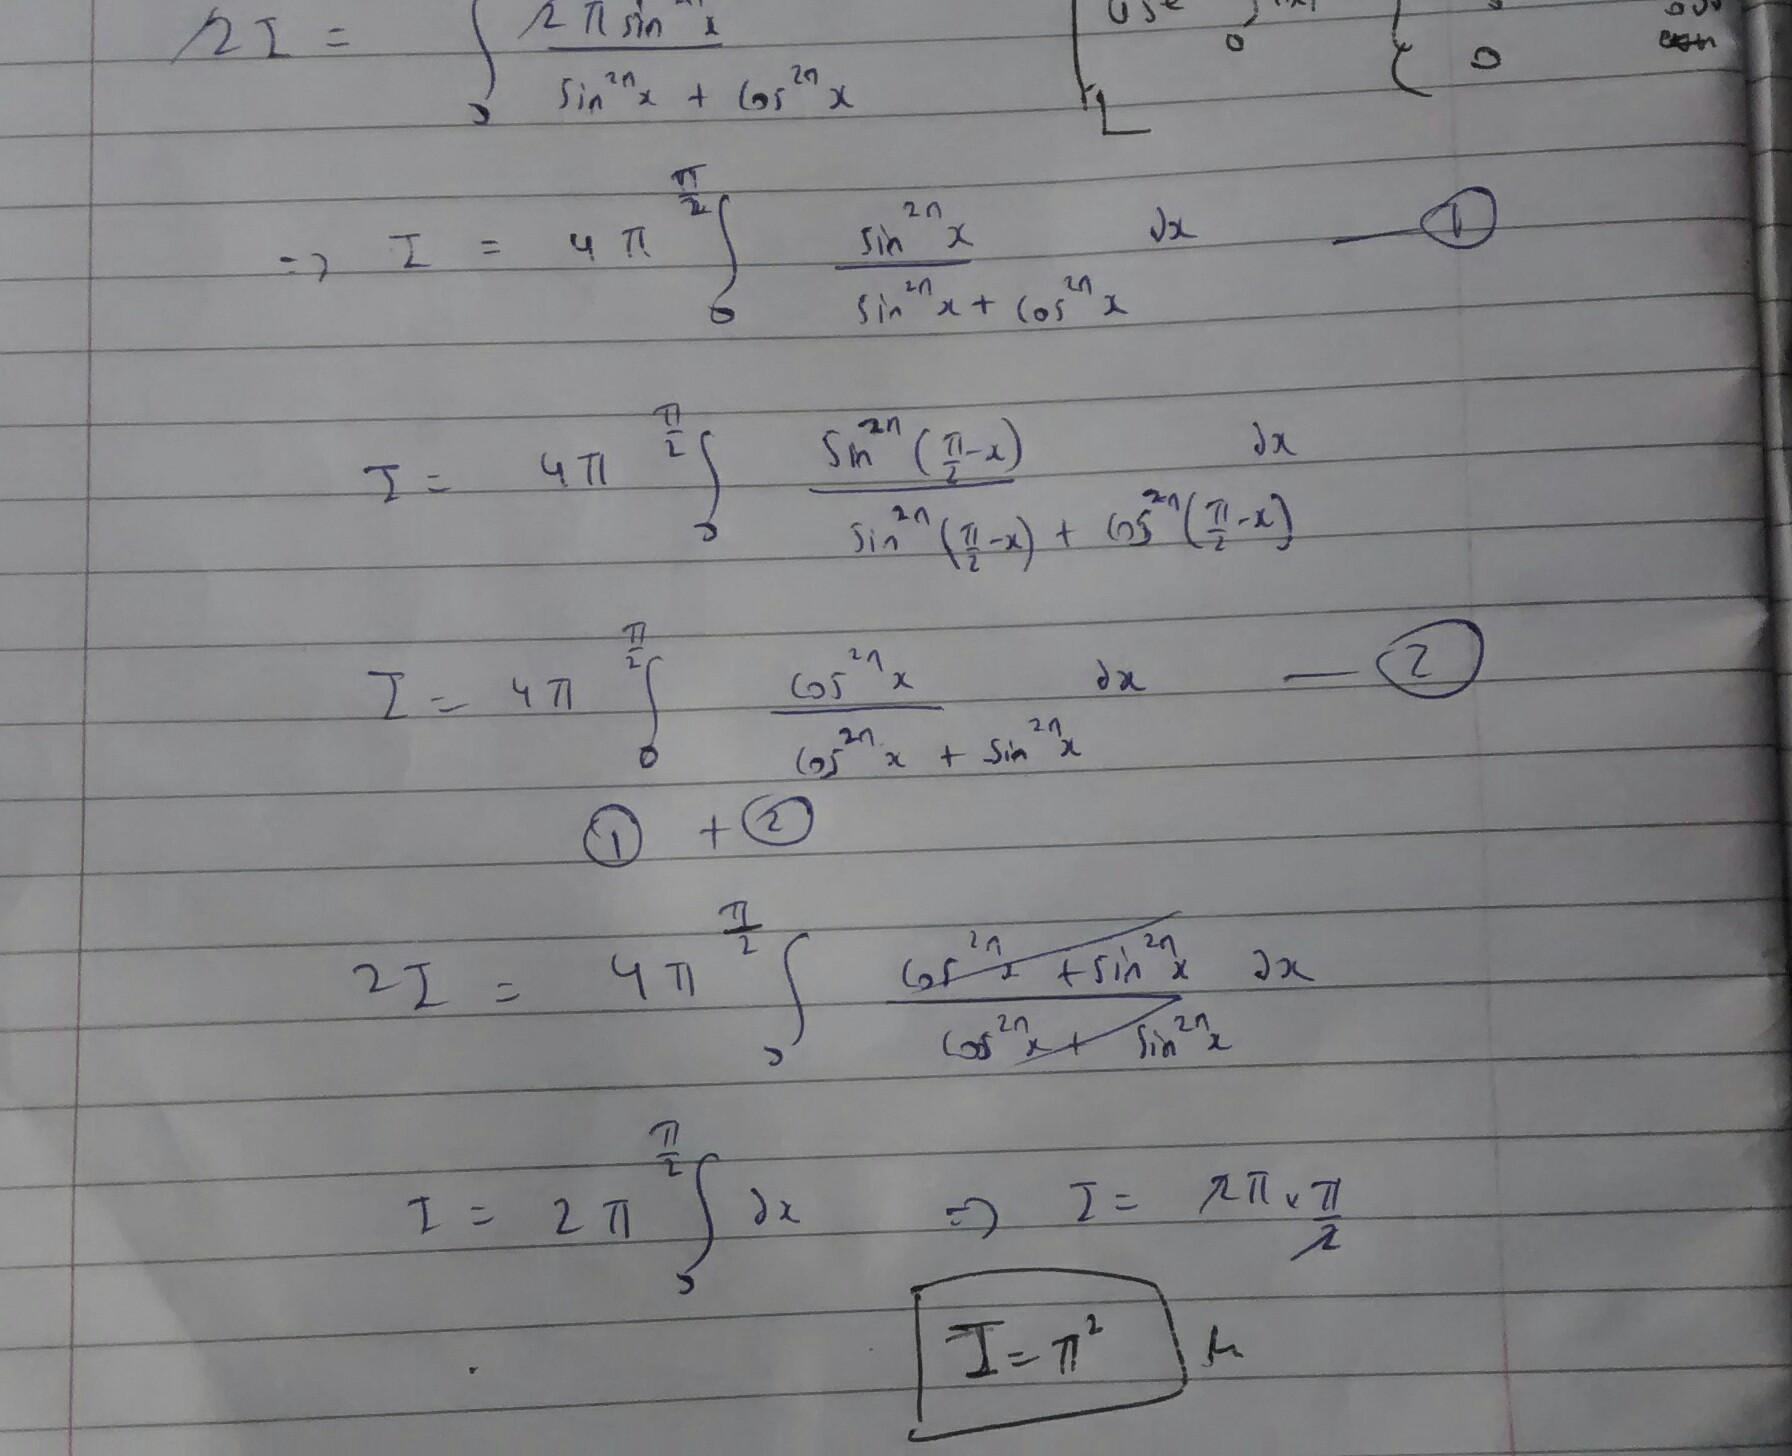 2I = ∫₀ 2π sin²ⁿx / sin²ⁿx + cos²ⁿx
0 0
=> I = 4π ∫₀^(π/2) sin²ⁿx / sin²ⁿx + cos²ⁿx dx — ①
I = 4π ∫₀^(π/2) sin²ⁿ(π/2-x) / sin²ⁿ(π/2-x) + cos²ⁿ(π/2-x) dx
I = 4π ∫₀^(π/2) cos²ⁿx / cos²ⁿx + sin²ⁿx dx — ②
① + ②
2I = 4π ∫₀^(π/2) cos²ⁿx + sin²ⁿx / cos²ⁿx + sin²ⁿx dx
I = 2π ∫₀^(π/2) dx => I = 2π × π/2
I = π²